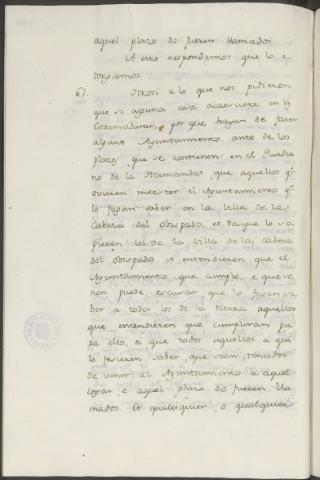 aquel plazo do fueren llamados.
A esto respondemos que lo o-
torgamos.
6). Otrosi a lo que nos pidieron
que si alguna cosa acaesciere en la
Estremadura, por que hayan de facer
algunt Ayuntamiento ante de los
plazos que se contienen en el Quader
no de la Hermandat que aquellos q.e
ovieren menester el Ayuntamiento q.e
lo fagan saber en la Villa de la
Cabeza del Obispado, et desque lo so
pieren los de la Villa de la Cabeza
del obispado si entendieren, que el
Ayuntamiento, que cumple, e que se
non puede escusar, que lo fagan sa
ber a todos los de la tierra aquellos
que entendieren que cumpliran pa
ra ello, e que todos aquellos a qui
lo ficieren saber, que sean tenudos
de venir al Ayuntamiento a aquel
logar e aquel plazo do fueren lla
mados. Et qualesquier, e qualquiera